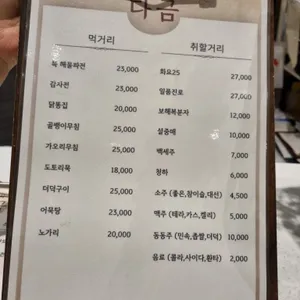 다음
먹거리
취할거리
해물파전 23,000
감자전 23,000
닭똥집 20,000
골뱅이무침 25,000
가오리무침 25,000
도토리묵 18,000
더덕구이 25,000
어묵탕 23,000
노가리 20,000
화요25 27,000
일품진로 27,000
보해복분자 12,000
설중매 10,000
백세주 7,000
청하 6,000
소주 (좋은,참이슬,대선) 4,500
맥주 (테라,카스,켈리) 5,000
동동주 (민속,좁쌀,더덕) 10,000
음료 (콜라,사이다,환타) 2,000